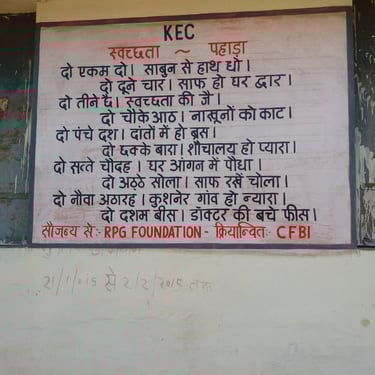 KEC
स्वच्छता ~ पहाड़ा
दो एकम दो। साबुन से हाथ धो।
दो दूने चार। साफ हो घर द्वार।
दो तीने छै। स्वच्छता की जै।
दो चौके आठ। नाखूनों को काट।
दो पंचे दश। दांतों में हो ब्रस।
दो छक्के बारा। शौचालय हो प्यारा।
दो सत्ते चौदह। घर आंगन में पौधा।
दो अठ्ठे सोला। साफ रखें चोला।
दो नौवा अठारह। कुशनेर गांव हो न्यारा।
दो दशम बीस। डॉक्टर की बचे फीस।
सौजन्य से:- RPG FOUNDATION - क्रियान्वित:- CFBI
से 2/2/2015 तक